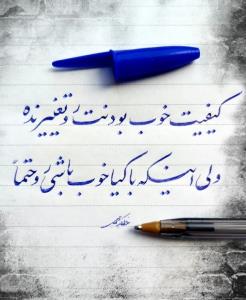 کیفیت خوب بودنت رو تغییر نده
ولی اینکه با کیا خوب باشی رو حتماً